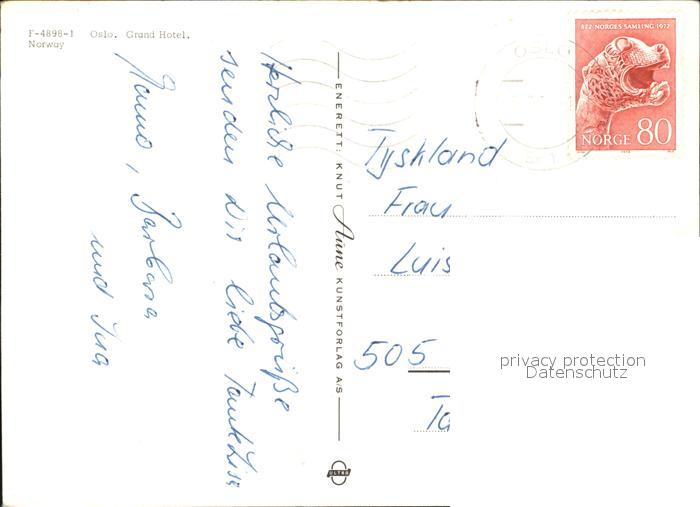 F-4898-1 Oslo. Grand Hotel.
Norway
Herzliche Urlaubsgrüße
senden Dir liebe Tante Lisa
Hanno, Barbara
und Inga
ENERETT: KNUT Aune KUNSTFORLAG A/S
ULTRA
872 NORGES SAMLING 1972
NORGE 80
OSLO
Tyskland
Frau
Luis
505
Ta
privacy protection
Datenschutz